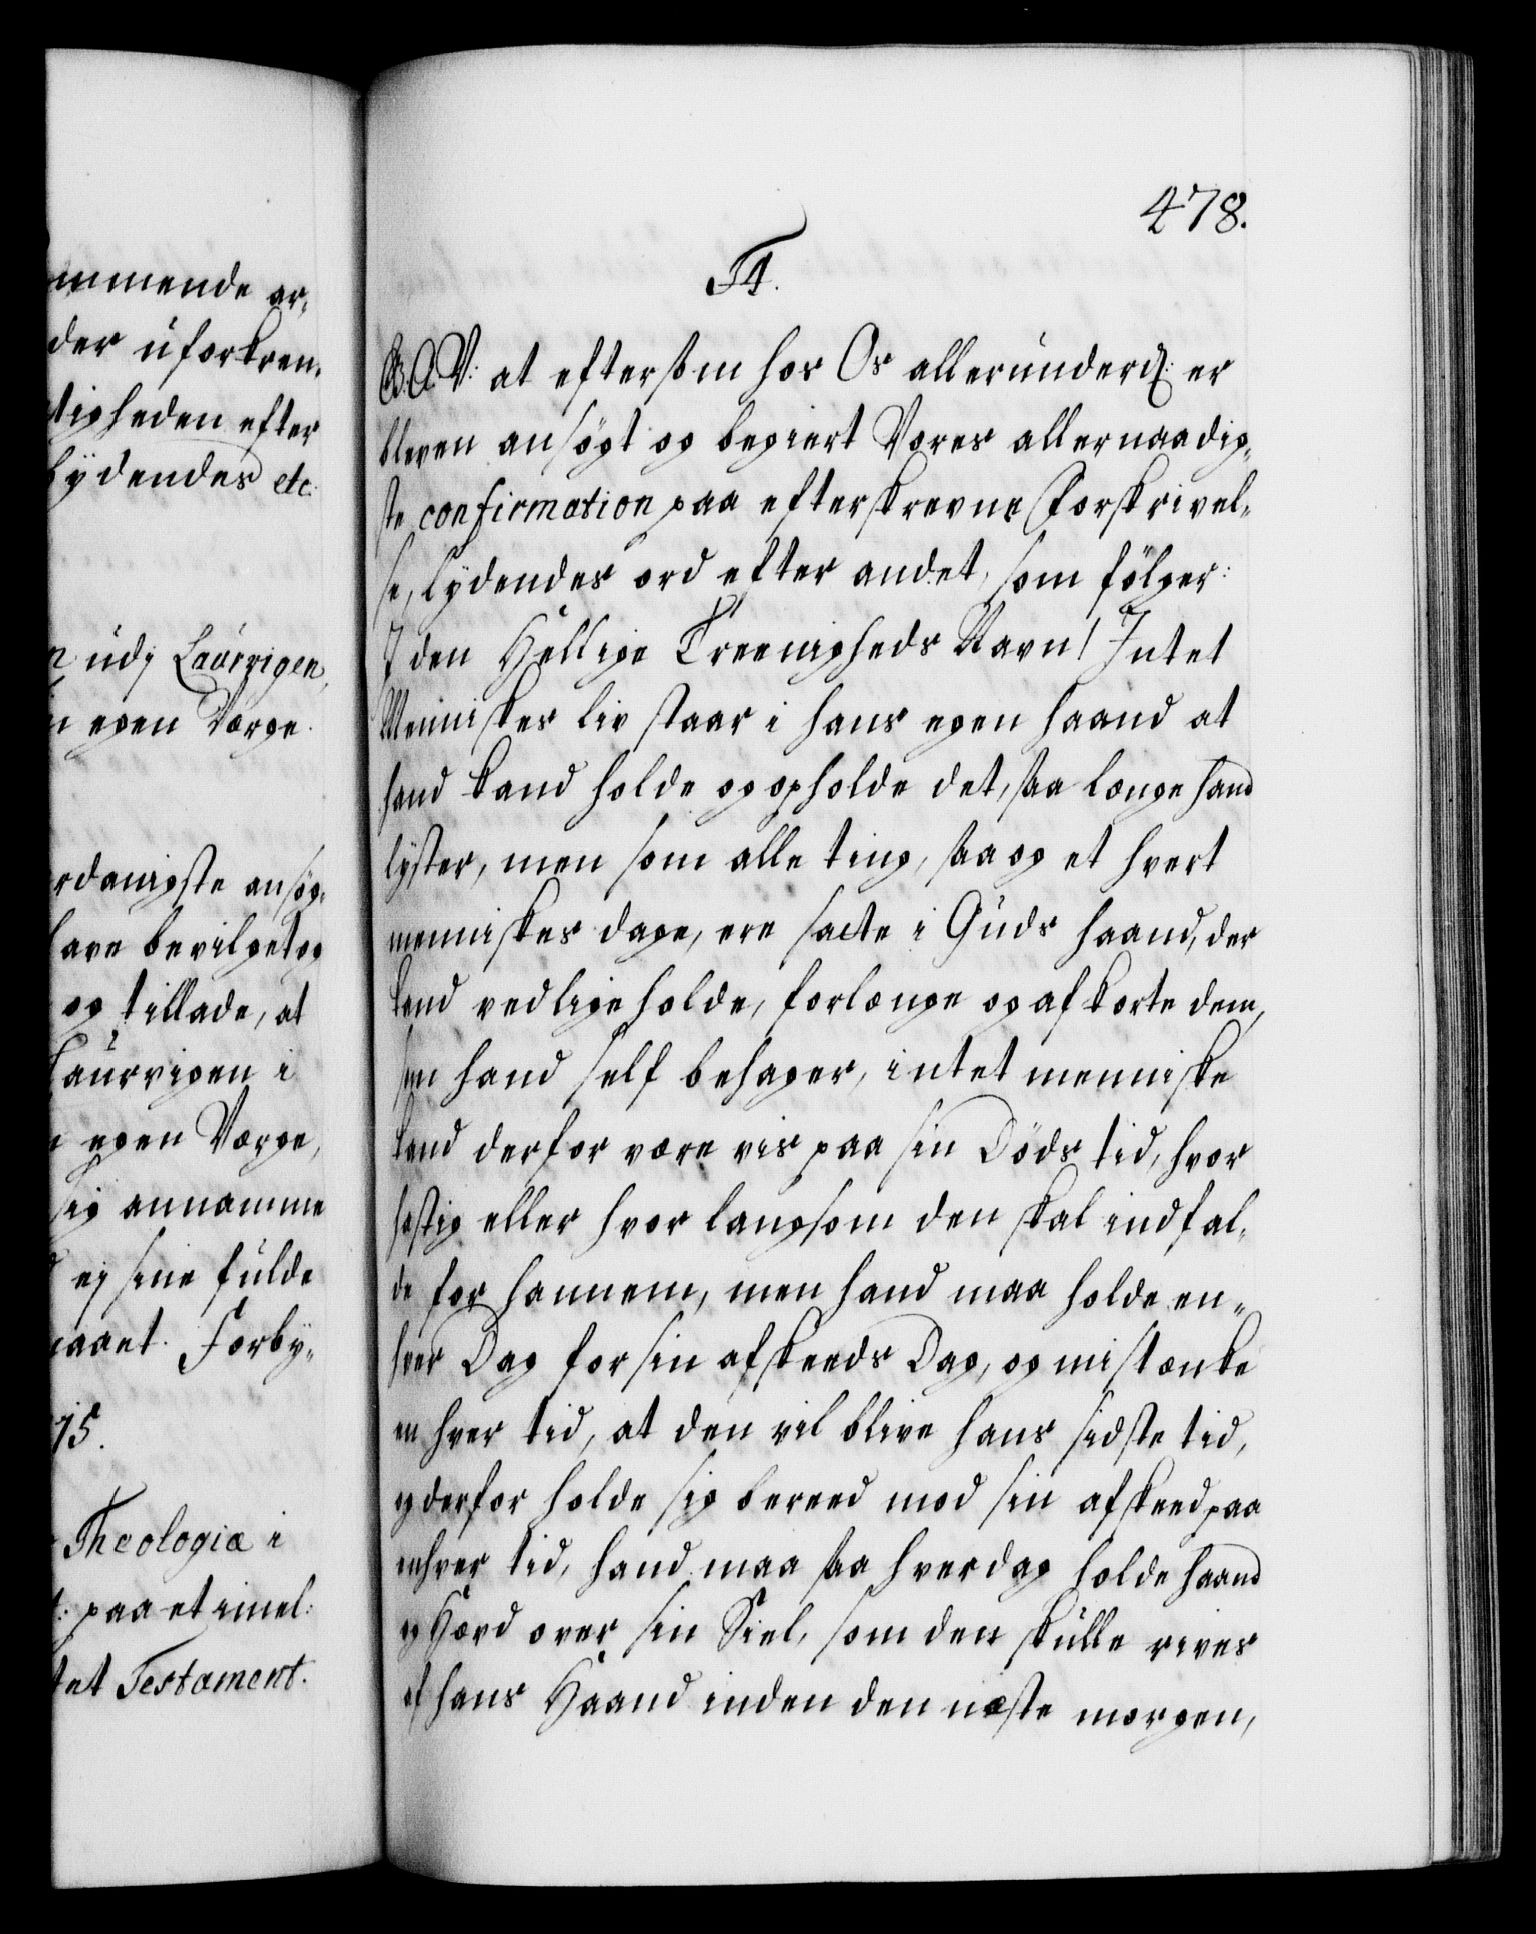 ommende ar„
der uforkren„
tigheden efter
Lydendes etc:
n udj Laurvigen,
n egen Værge.
rdanigste ansøg„
have bevilget og
og tillade, at
Laurvigen i
n egen Værge,
sig annamme
ej sine fulde
naaet. Forby„
15.
Theologiæ i
t: paa et imel:
tet Testament.
478.
F4.
G. A. V: at eftersom hos Os allerunderd: er
bleven ansögt og begiert Vores allernaadig„
ste confirmation paa efterskrevne Forskrivel„
se, lydendes ord efter andet, som fölger:
I den Hellige Treenigheds Navn! Intet
Menniskes liv staar i hans egen haand at
hand kand holde og opholde det, saa længe hand
lyster, men som alle ting, saa og et hvert
menniskes dage, ere satte i Guds haand, der
kand vedligeholde, forlænge og afkorte dem,
som hand self behager, intet menniske
kand derfor være vis paa sin Döds tid, hvor
hastig eller hvor langsom den skal indfal„
de for hannem, men hand maa holde en„
hver Dag for sin afskeeds Dag, og mistænke
en hver tid, at den vil blive hans sidste tid,
og derfor holde sig bereed mod sin afskeed paa
enhver tid, hand maa saa hver dag holde haand
og Hævd over sin Siel, som den skulle rives
af hans Haand inden den næste morgen,